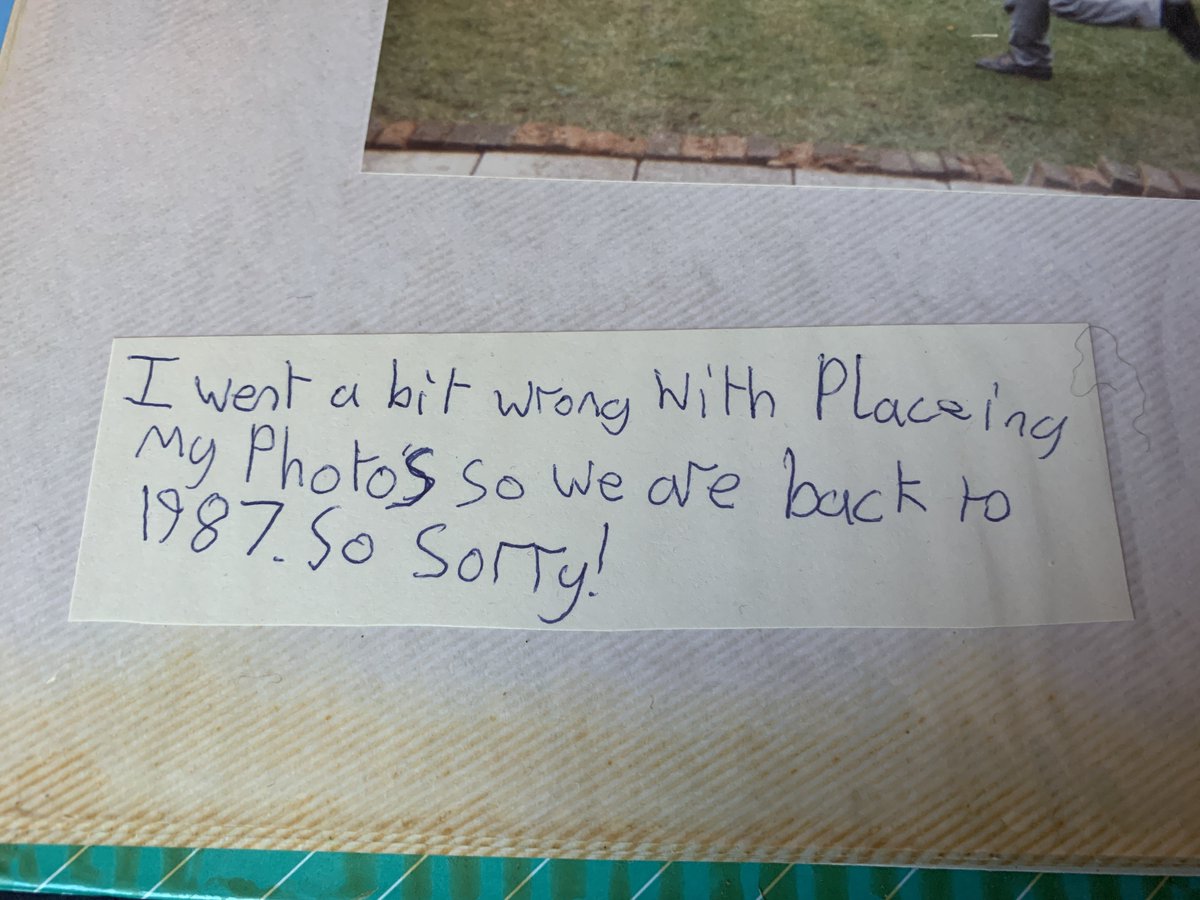 I went a bit wrong with Placeing
My Photo's so we are back to
1987. So Sorry!